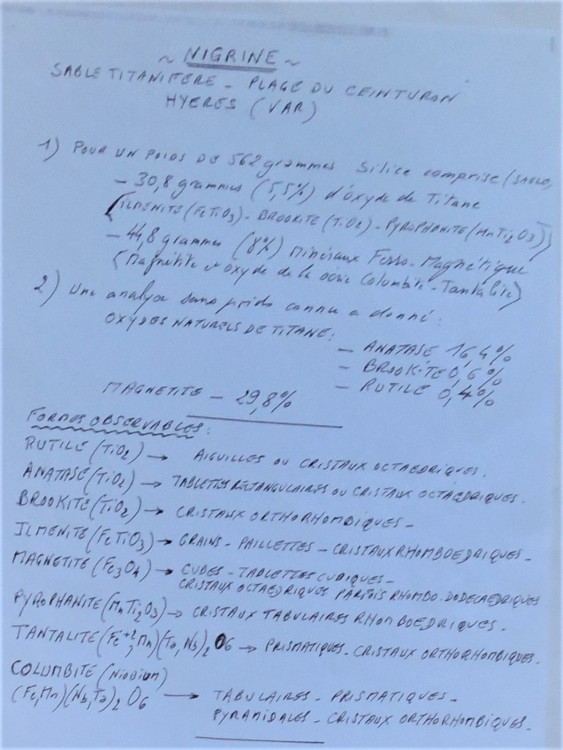 ~ NIGRINE ~
SABLE TITANIFERE - PLAGE DU CEINTURON
HYERES (VAR)
1) POUR UN POIDS DE 562 grammes Silice comprise (SABLE)
- 30,8 grammes (5,5%) d'oxyde de Titane
(ILMENITE (FeTiO3) - BROOKITE (TiO2) - PYROPHANITE (MnTi2O3))
- 44,8 grammes (8%) Minéraux Ferro-Magnétique
(Magnétite et oxyde de la série Columbite-Tantalite)
2) Une analyse sans poids connu a donné:
OXYDES NATURELS DE TITANE:
- ANATASE 16,4%
- BROOKITE 0,6%
- RUTILE 0,4%
MAGNETITE - 29,8%
FORMES OBSERVABLES:
RUTILE (TiO2) → AIGUILLES OU CRISTAUX OCTAEDRIQUES.
ANATASE (TiO2) → TABLETTES RECTANGULAIRES OU CRISTAUX OCTAEDRIQUES.
BROOKITE (TiO2) → CRISTAUX ORTHORHOMBIQUES -
ILMENITE (FeTiO3) → GRAINS - PAILLETTES - CRISTAUX RHOMBOEDRIQUES -
MAGNETITE (Fe3O4) → CUBES - TABLETTES CUBIQUES -
CRISTAUX OCTAEDRIQUES PARFOIS RHOMBO-DODECAEDRIQUES
PYROPHANITE (MnTi2O3) → CRISTAUX TABULAIRES RHOMBOEDRIQUES.
TANTALITE (Fe+2, Mn)(Ta,Nb)2O6 → PRISMATIQUES. CRISTAUX ORTHORHOMBIQUES.
COLUMBITE (NIOBIUM)
(Fe,Mn)(Nb,Ta)2O6 → TABULAIRES - PRISMATIQUES -
PYRAMIDALES - CRISTAUX ORTHORHOMBIQUES.